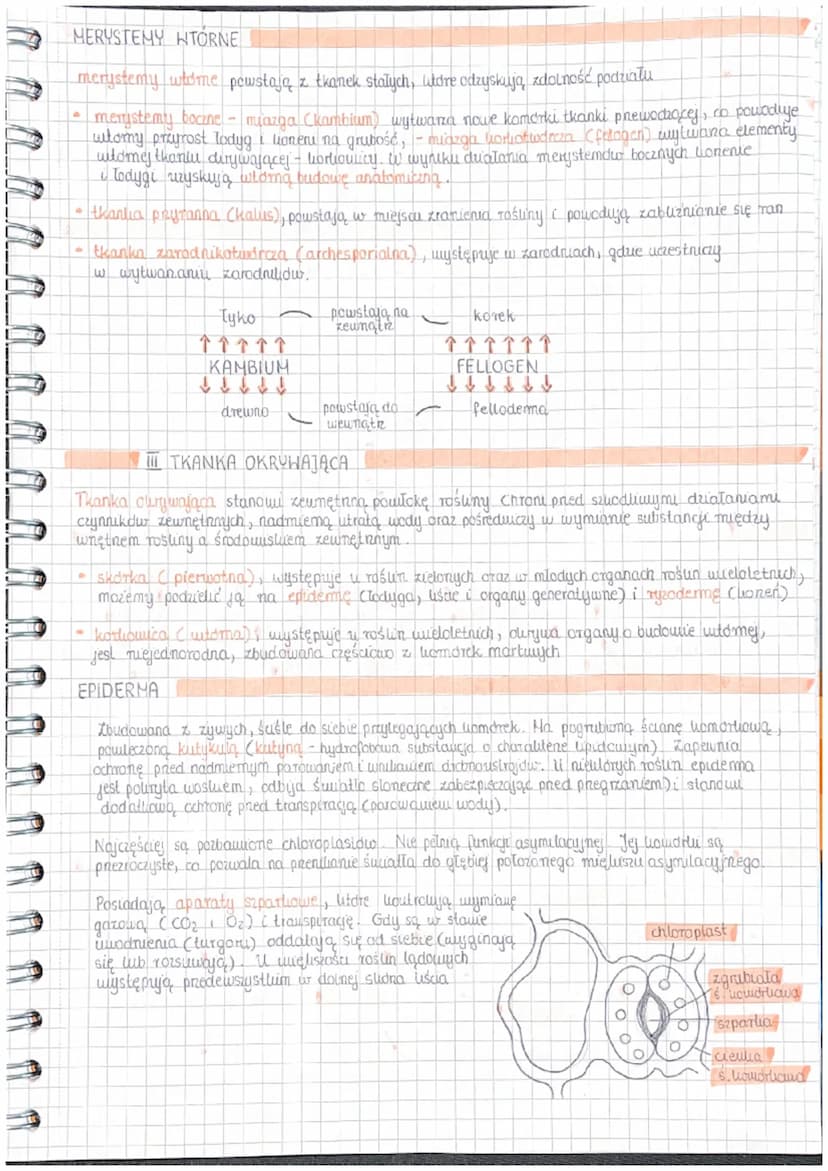 MERYSTEMY WTÓRNE
merystemy wtórne powstają z tkanek stałych, które odzyskują zdolność podziału
• merystemy boczne - miazga (kambium) wytwarza nowe komórki tkanki przewodzącej, co powoduje
wtórny przyrost łodyg i korzeni na grubość, - miazga korkotwórcza (felogen) wytwarza elementy
wtórnej tkanki okrywającej - korkowicy. W wyniku działania merystemów bocznych korzenie
i łodygi uzyskują wtórną budowę anatomiczną.
• tkanka przyranna (kalus), powstają w miejscu zranienia rośliny i powodują zabliźnianie się ran
• tkanka zarodnikotwórcza (archesporialna), występuje w zarodniach, gdzie uczestniczy
w wytwarzaniu zarodników.
łyko powstają na korek
zewnątrz
↑ ↑ ↑ ↑ ↑ ↑ ↑ ↑ ↑ ↑ ↑
KAMBIUM FELLOGEN
↓ ↓ ↓ ↓ ↓ ↓ ↓ ↓ ↓ ↓ ↓
drewno powstają do fellodermą
wewnątrz
III TKANKA OKRYWAJĄCA
Tkanka okrywająca stanowi zewnętrzną powłokę rośliny Chroni przed szkodliwymi działaniami
czynników zewnętrznych, nadmierną utratą wody oraz pośredniczy w wymianie substancji między
wnętrzem rośliny a środowiskiem zewnętrznym.
• skórka (pierwotna), występuje u roślin zielonych oraz w młodych organach roślin wieloletnich,
możemy podzielić ją na epidermę (łodyga, liście i organy generatywne) i ryzodermę (korzeń)
• korkowica (wtórna), występuje u roślin wieloletnich, okrywa organy o budowie wtórnej,
jest niejednorodna, zbudowana częściowo z komórek martwych
EPIDERMA
Zbudowana z żywych, ściśle do siebie przylegających komórek. Ma pogrubioną ścianę komórkową,
powleczoną kutykulą (kutyną - hydrofobowa substancja o charakterze lipidowym). Zapewnia
ochronę przed nadmiernym parowaniem i wnikaniem drobnoustrojów. U niektórych roślin epiderma
jest pokryta woskiem, odbija światło słoneczne zabezpieczając przed przegrzaniem) i stanowi
dodatkową ochronę przed transpiracją (parowaniem wody).
Najczęściej są pozbawione chloroplastów. Nie pełnią funkcji asymilacyjnej Jej komórki są
przezroczyste, co pozwala na przenikanie światła do głębiej położonego miękiszu asymilacyjnego.
Posiadają aparaty szparkowe, które kontrolują wymianę
gazową (CO₂ i O₂) i transpirację. Gdy są w stanie
uwodnienia (turgoru) oddalają się od siebie (wyginają
się lub rozsuwają). U większości roślin lądowych
występują przedewszystkim w dolnej skórka liścia
chloroplast
zgrubiała
ś. komórkowa
szparka
cienka
ś. komórkowa